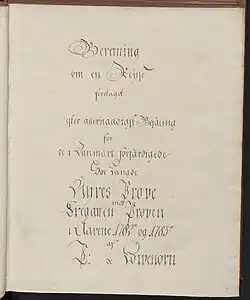 Beretning
om en Reyse
foretagd
efter allernaadigst Befaling
for
de i Danmark forfærdigede
Søe Längde
Uhres Prøve
med
Fregatten Prøven
i Aarene 1782 og 1783
af
P: de Löwenörn